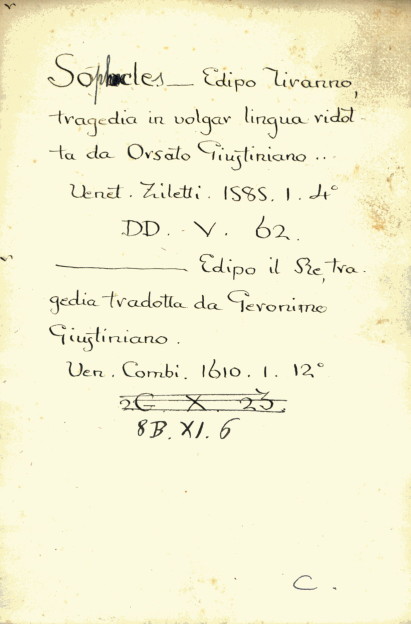 Sophocles — Edipo Tiranno,
tragedia in volgar lingua ridot-
ta da Orsato Giustiniano ..
Venet. Ziletti. 1585. 1. 4°
DD. V. 62.
——— Edipo il Re, tra-
gedia tradotta da Geronimo
Giustiniano.
Ven. Combi. 1610. 1. 12°
2G X 23
8B. XI. 6
C.